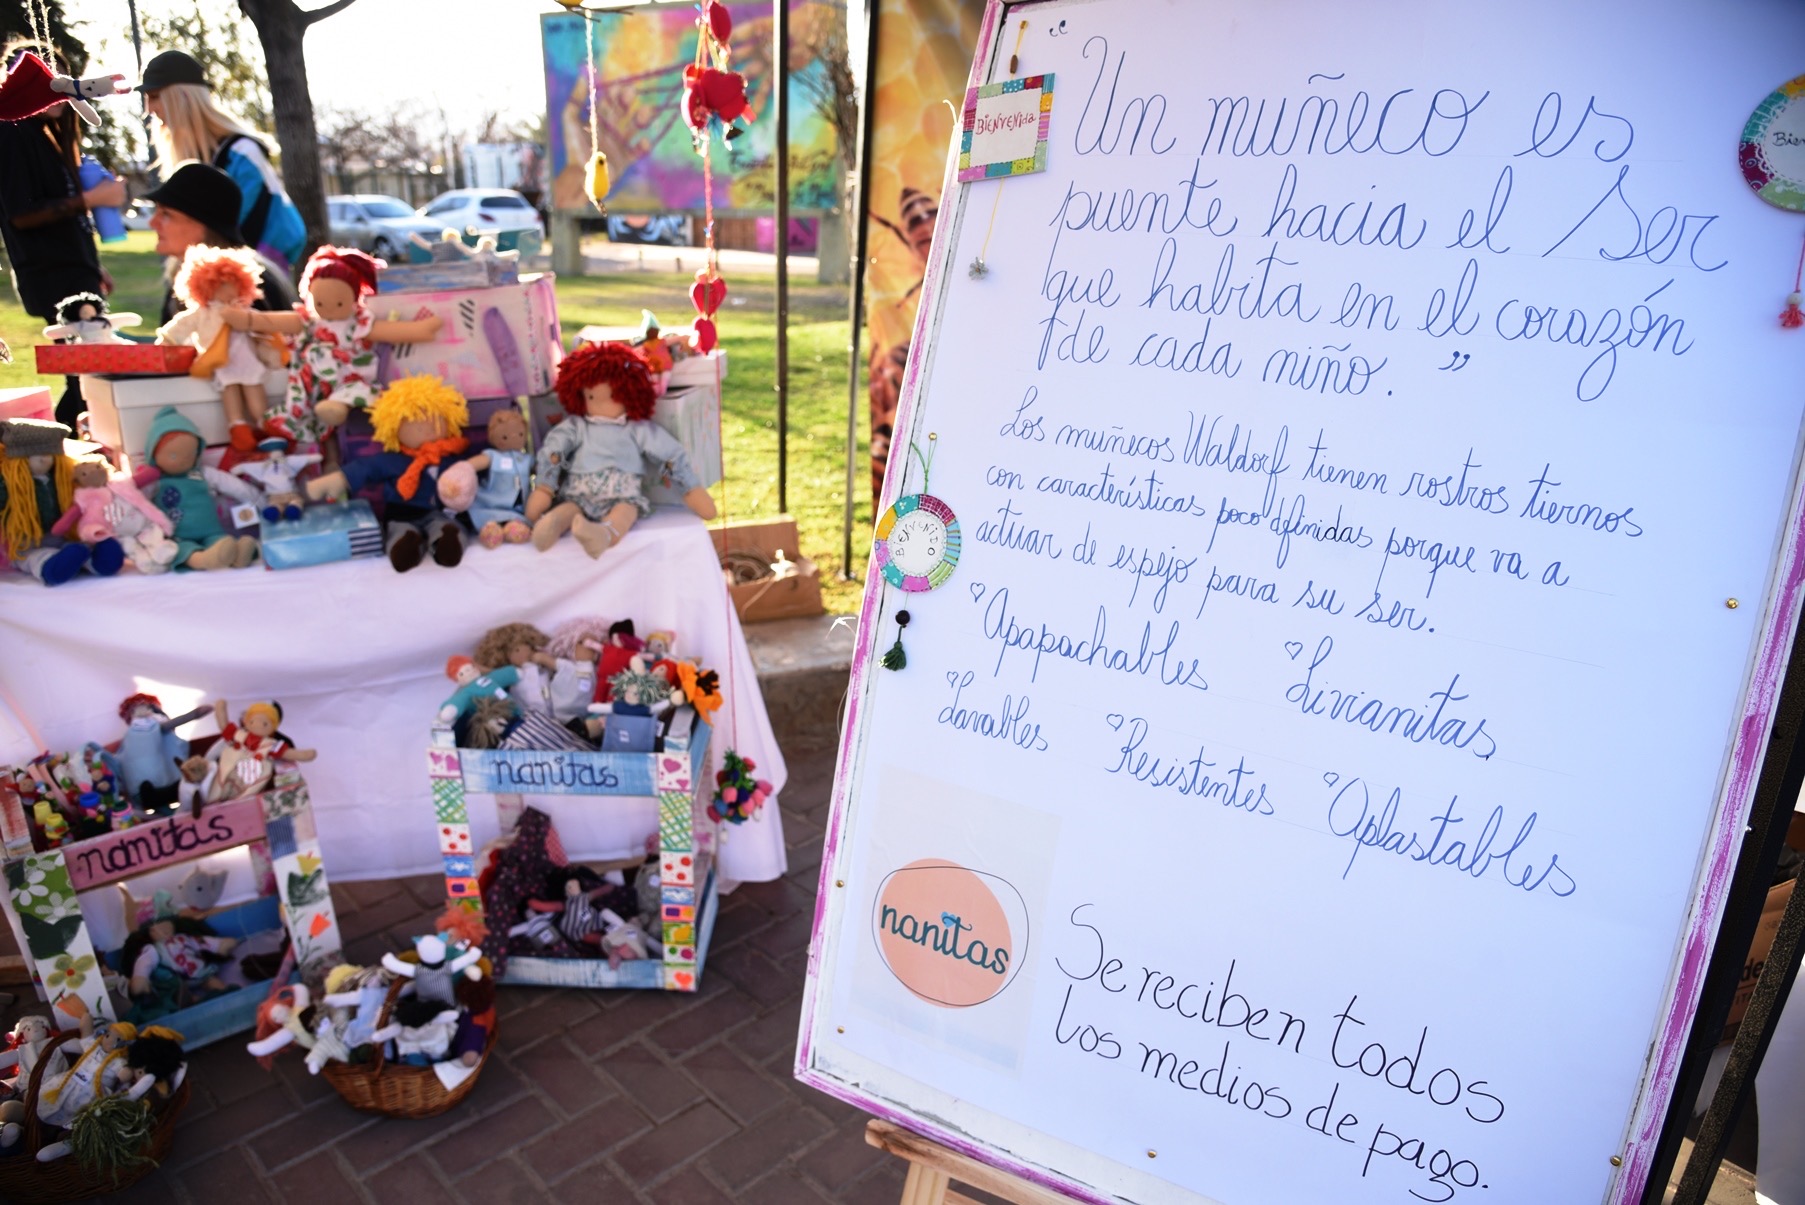 “Un muñeco es
puente hacia el Ser
que habita en el corazón
de cada niño.”
Los muñecos Waldorf tienen rostros tiernos
con características poco definidas porque va a
actuar de espejo para su ser.
♡Apapachables ♡Livianitas
♡Lavables ♡Resistentes ♡Aplastables
nanitas
Se reciben todos
los medios de pago.
BIENVENIDA
BIENVENIDO
nanitas
nanitas